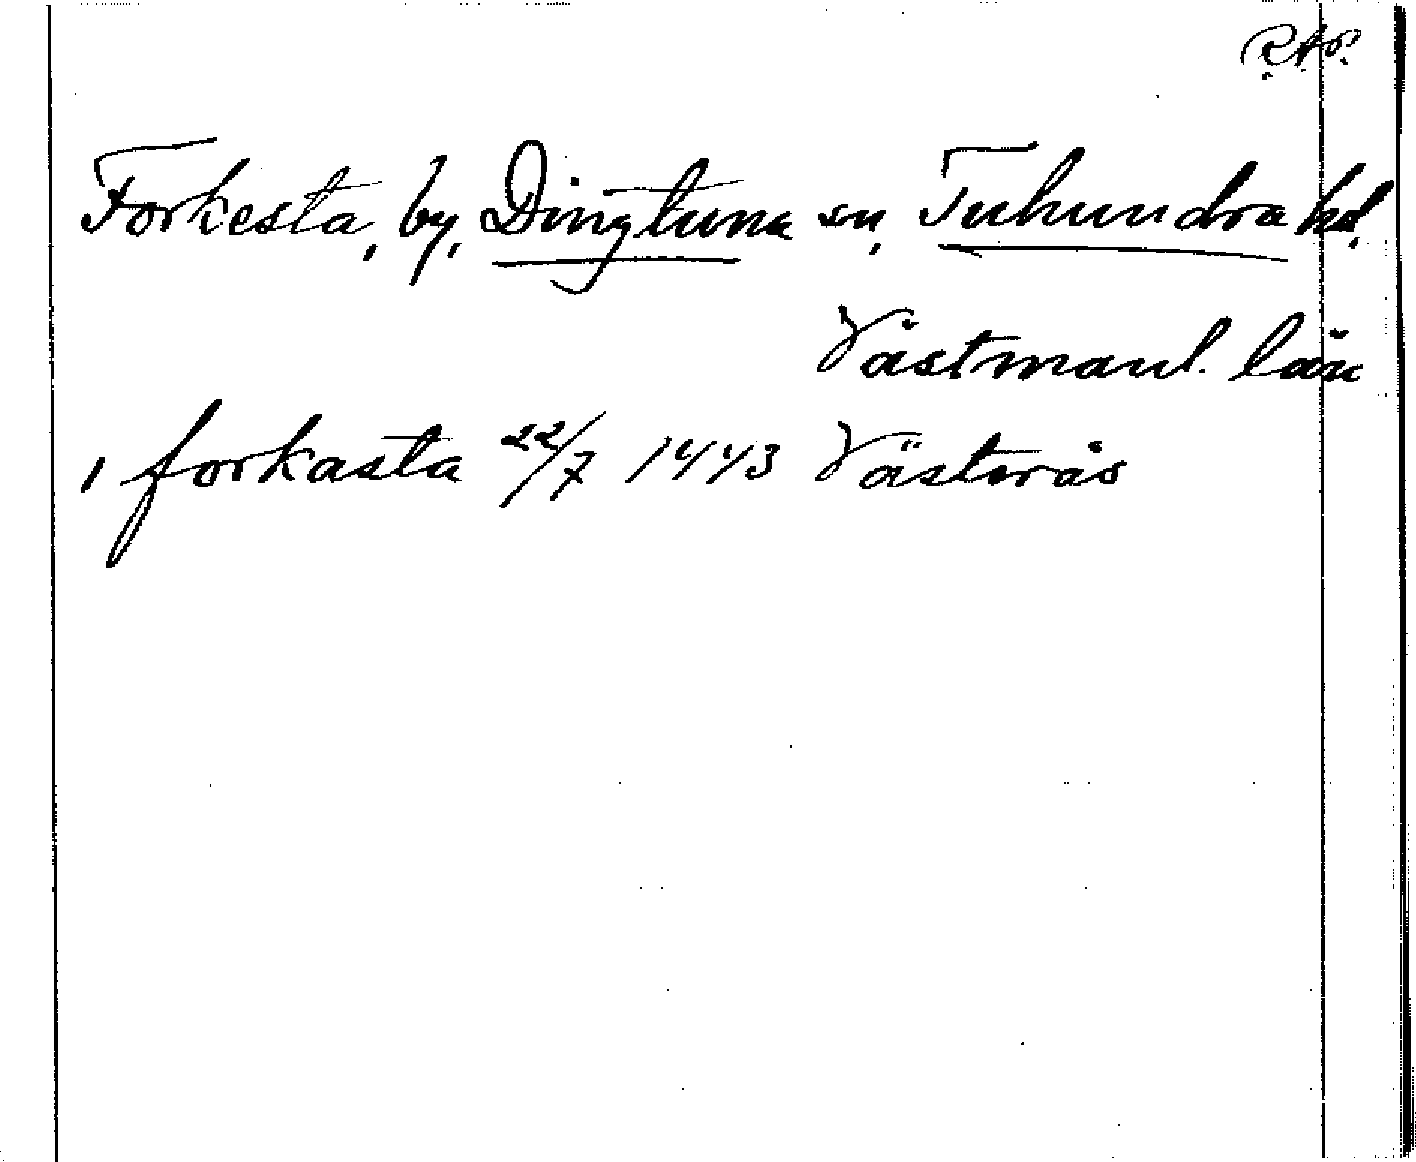 R.A.P.
Forkesta, by, Dingtuna sn, Tuhundra hd,
Västmanl. län
, forkasta 22/7 1443 Västerås